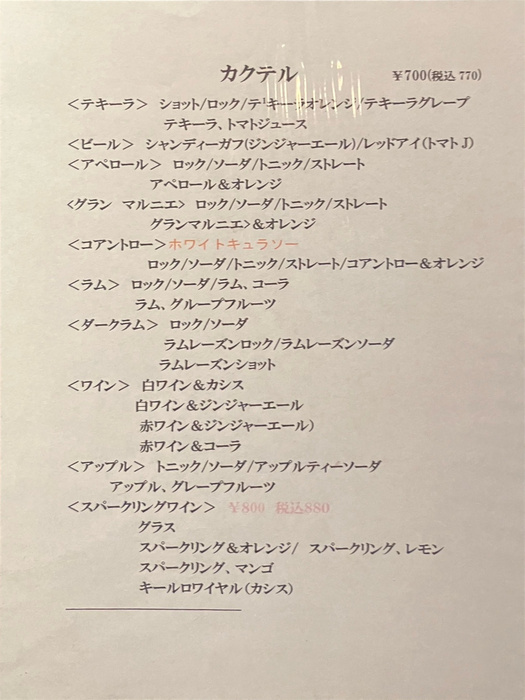 カクテル ¥700(税込 770)
＜テキーラ＞ ショット/ロック/テキーラオレンジ/テキーラグレープ
テキーラ、トマトジュース
＜ビール＞ シャンディーガフ(ジンジャーエール)/レッドアイ(トマトJ)
＜アペロール＞ ロック/ソーダ/トニック/ストレート
アペロール＆オレンジ
<グラン マルニエ> ロック/ソーダ/トニック/ストレート
グランマルニエ>＆オレンジ
＜コアントロー＞ホワイトキュラソー
ロック/ソーダ/トニック/ストレート/コアントロー＆オレンジ
＜ラム＞ ロック/ソーダ/ラム、コーラ
ラム、グループフルーツ
＜ダークラム＞ ロック/ソーダ
ラムレーズンロック/ラムレーズンソーダ
ラムレーズンショット
＜ワイン＞ 白ワイン＆カシス
白ワイン＆ジンジャーエール
赤ワイン＆ジンジャーエール）
赤ワイン＆コーラ
＜アップル＞ トニック/ソーダ/アップルティーソーダ
アップル、グレープフルーツ
＜スパークリングワイン＞ ¥800 税込880
グラス
スパークリング＆オレンジ/ スパークリング、レモン
スパークリング、マンゴ
キールロワイヤル(カシス)